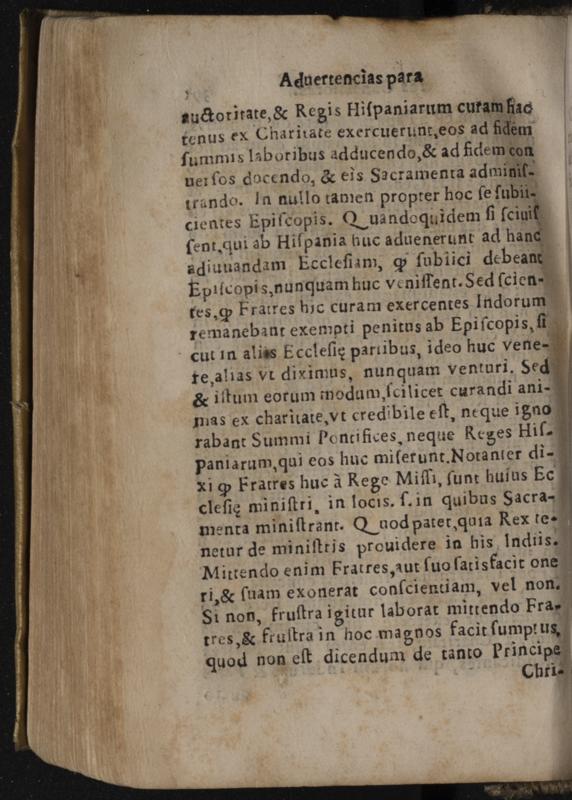 Aduertencias para
auctoritate,& Regis Hiſpaniarum curam hac
tenus ex Charitate exercuerunt,eos ad fidem
ſummis laboribus adducendo,& ad fidem con
uerſos docendo, & eis Sacramenta adminiſ-
trando. In nullo tamen propter hoc ſe ſubii-
cientes Epiſcopis. Quandoquidem ſi ſciuiſ
ſent,qui ab Hiſpania huc aduenerunt ad hanc
adiuuandam Eccleſiam, ꝙ ſubiici debeant
Epiſcopis,nunquam huc veniſſent. Sed ſcien-
tes,ꝙ Fratres hic curam exercentes Indorum
remanebant exempti penitus ab Epiſcopis, ſi
cut in aliis Eccleſię partibus, ideo huc vene-
re,alias vt diximus, nunquam venturi. Sed
& iſtum eorum modum,ſcilicet curandi ani-
mas ex charitate,vt credibile eſt, neque igno
rabant Summi Pontifices, neque Reges Hiſ-
paniarum,qui eos huc miſerunt.Notanter di-
xi ꝙ Fratres huc à Rege Miſſi, ſunt huius Ec
cleſię miniſtri, in locis. ſ. in quibus Sacra-
menta miniſtrant. Quod patet,quia Rex te-
netur de miniſtris prouidere in his Indiis.
Mittendo enim Fratres,aut ſuo ſatisfacit one
ri,& ſuam exonerat conſcientiam, vel non.
Si non, fruſtra igitur laborat mittendo Fra-
tres,& fruſtra in hoc magnos facit ſumptus,
quod non eſt dicendum de tanto Principe
Chri-